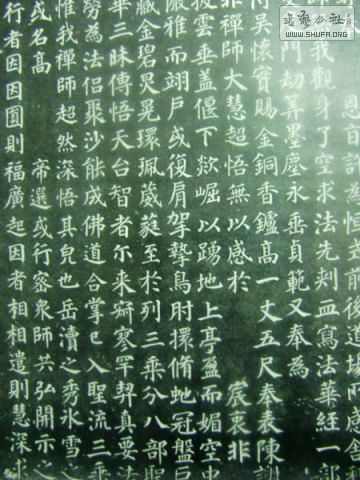 书艺公社
WWW.SHUFA.ORG
前後道場所感舍
我觀身了空求法先刺血寫法華經一部
劫筭墨塵永垂貞範又奉為
吳懷實賜金銅香鑪高一丈五尺奉表陳謝
非禪師大慧超悟無以感於 宸衷非
拔雲垂蓋偃下欻崛以踊地上亭盈而媚空中
嚴雅而翊戶或復肩挐摯鳥肘擐脩虵冠盤巨
藏金碧炅晃環珮葳蕤至於列三乘分八部聖
一昧傳悟天台智者尒来寂寥罕契真要法
勞為法侶聚沙能成佛道合掌已入聖流三乘
惟我禪師超然深悟其皃也岳瀆之秀冰雪之
或名高 帝選或行密衆師共弘開示之
行者因因圓則福廣起因者相相遣則慧深求